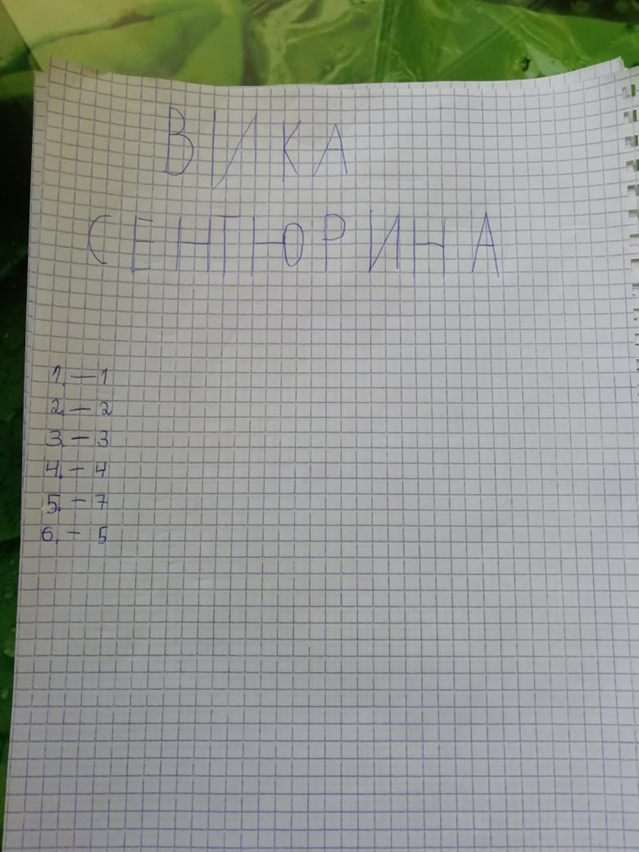 ВИКА
СЕНТЮРИНА
1. — 1
2. — 2
3. — 3
4. — 4
5. — 7
6. — 5